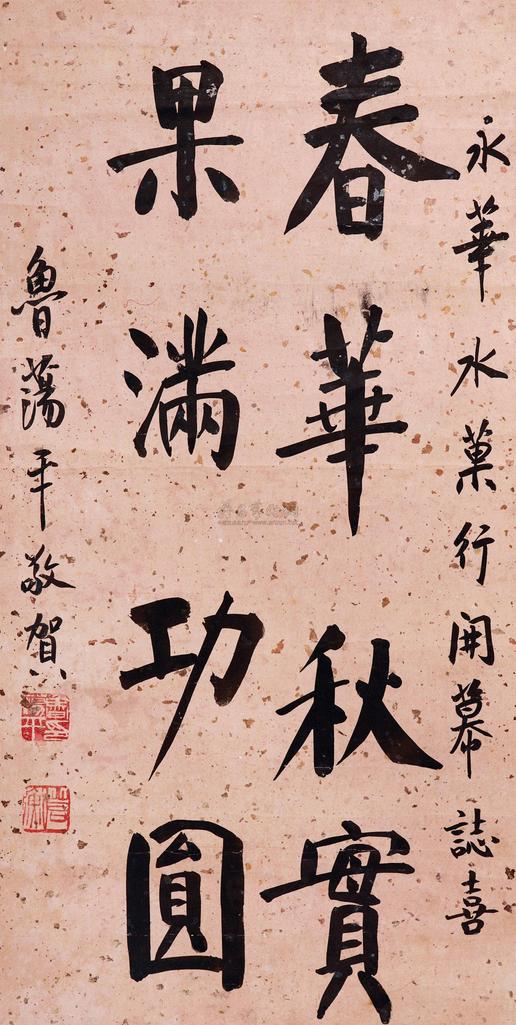 永華水菓行開幕誌喜
春華秋實
果滿功圓
魯蕩平敬賀